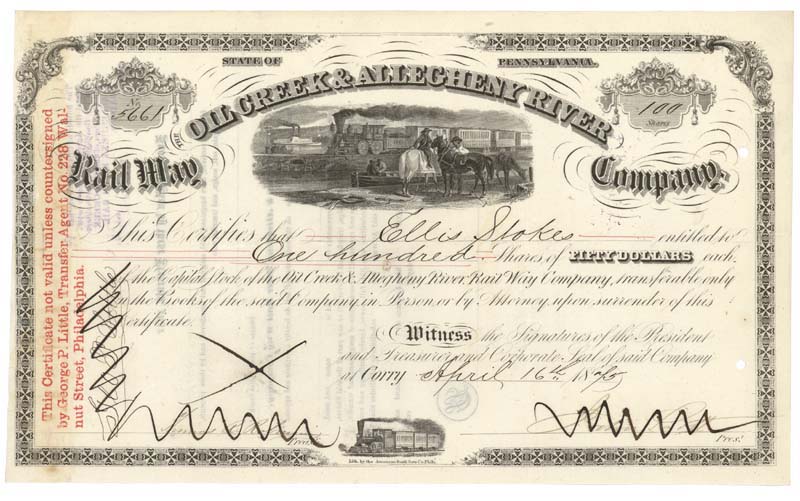 STATE OF PENNSYLVANIA.
No. 5661
100
Shares
THE OIL CREEK & ALLEGHENY RIVER
Rail Way Company.
This Certifies that Ellis Stokes entitled to
One hundred Shares of FIFTY DOLLARS each.
of the Capital Stock of the Oil Creek & Allegheny River Rail Way Company, transferable only
in the Books of the said Company in Person or by Attorney, upon surrender of this
Certificate.
Witness the Signatures of the President
and Treasurer and Corporate Seal of said Company
at Corry April 16th
Pres.t
This Certificate not valid unless countersigned
by George P. Little, Transfer Agent No. 228 Wal-
nut Street, Philadelphia.
Lith. by the American Bank Note Co. Phila.